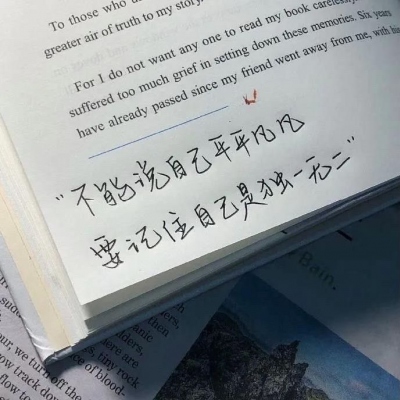 To those who
greater air of truth to my story,
For I do not want any one to read my book careless
suffered too much grief in setting down these memories. Six years
have already passed since my friend went away from me, with his
"不能说自己平平凡凡
要记住自己是独一无二"
Bain.
then
are
tiny rock
of blood-
our, we turn off the
row track down
flow to